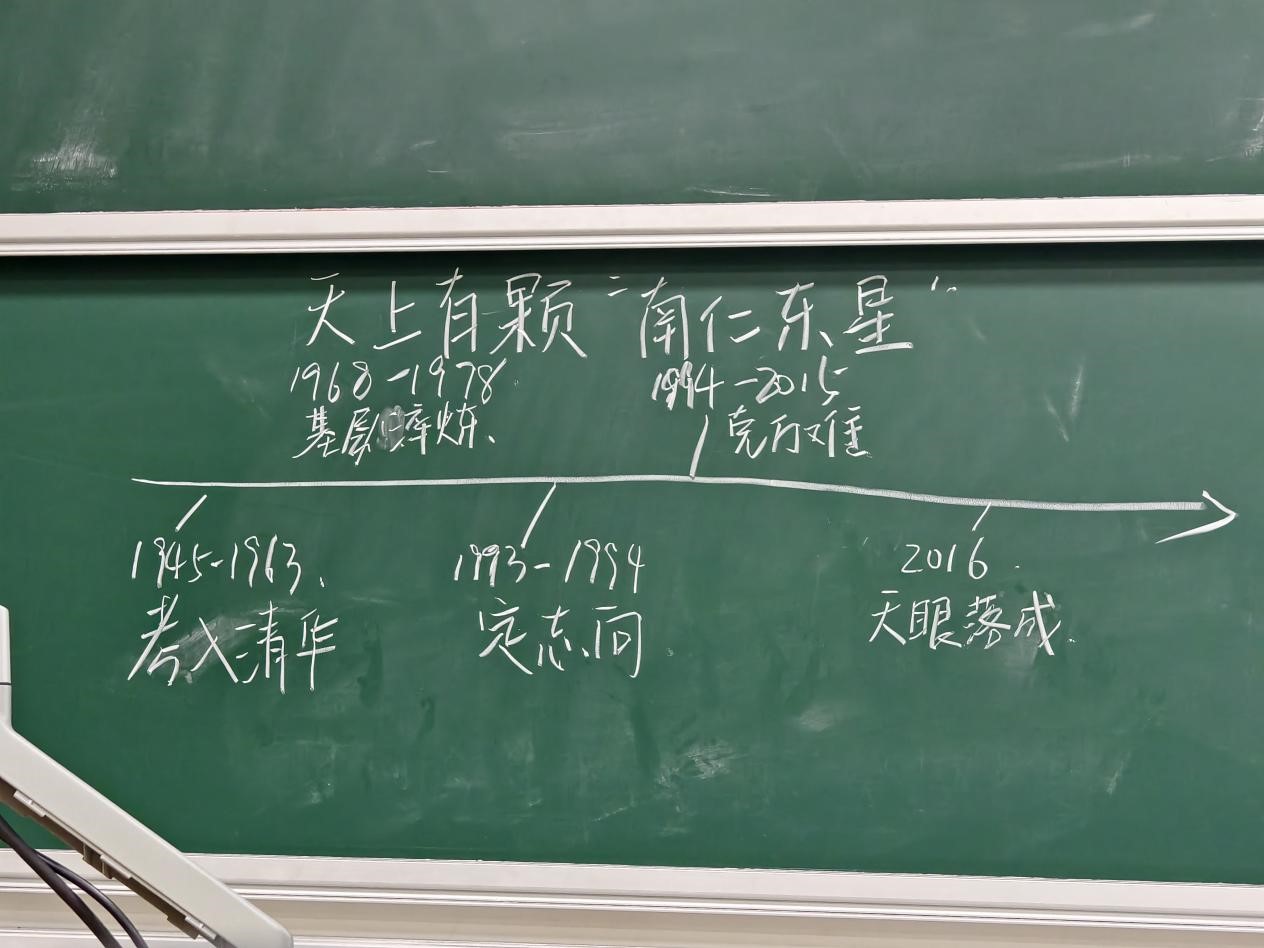 天上有颗“南仁东星”
1968-1978
基层淬炼、
1994-2015
克万难
1945-1963、
考入清华
1993-1994
定志向
2016.
天眼落成.